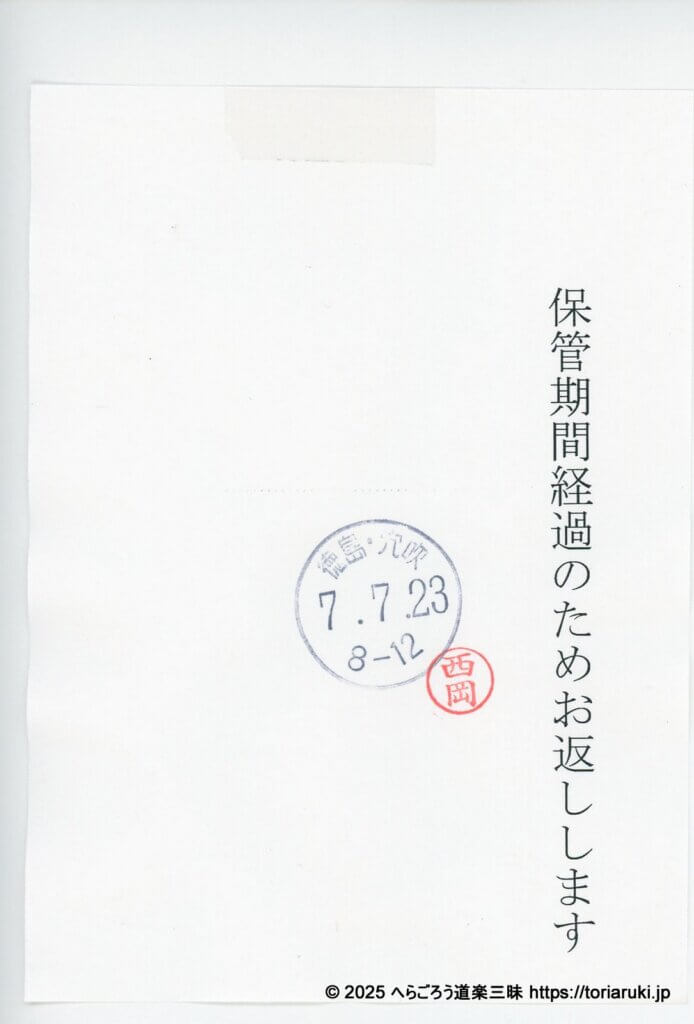 保管期間経過のためお返しします
徳島・穴吹
7.7.23
8-12
西岡
© 2025 へらごろう道楽三昧 https://toriaruki.jp